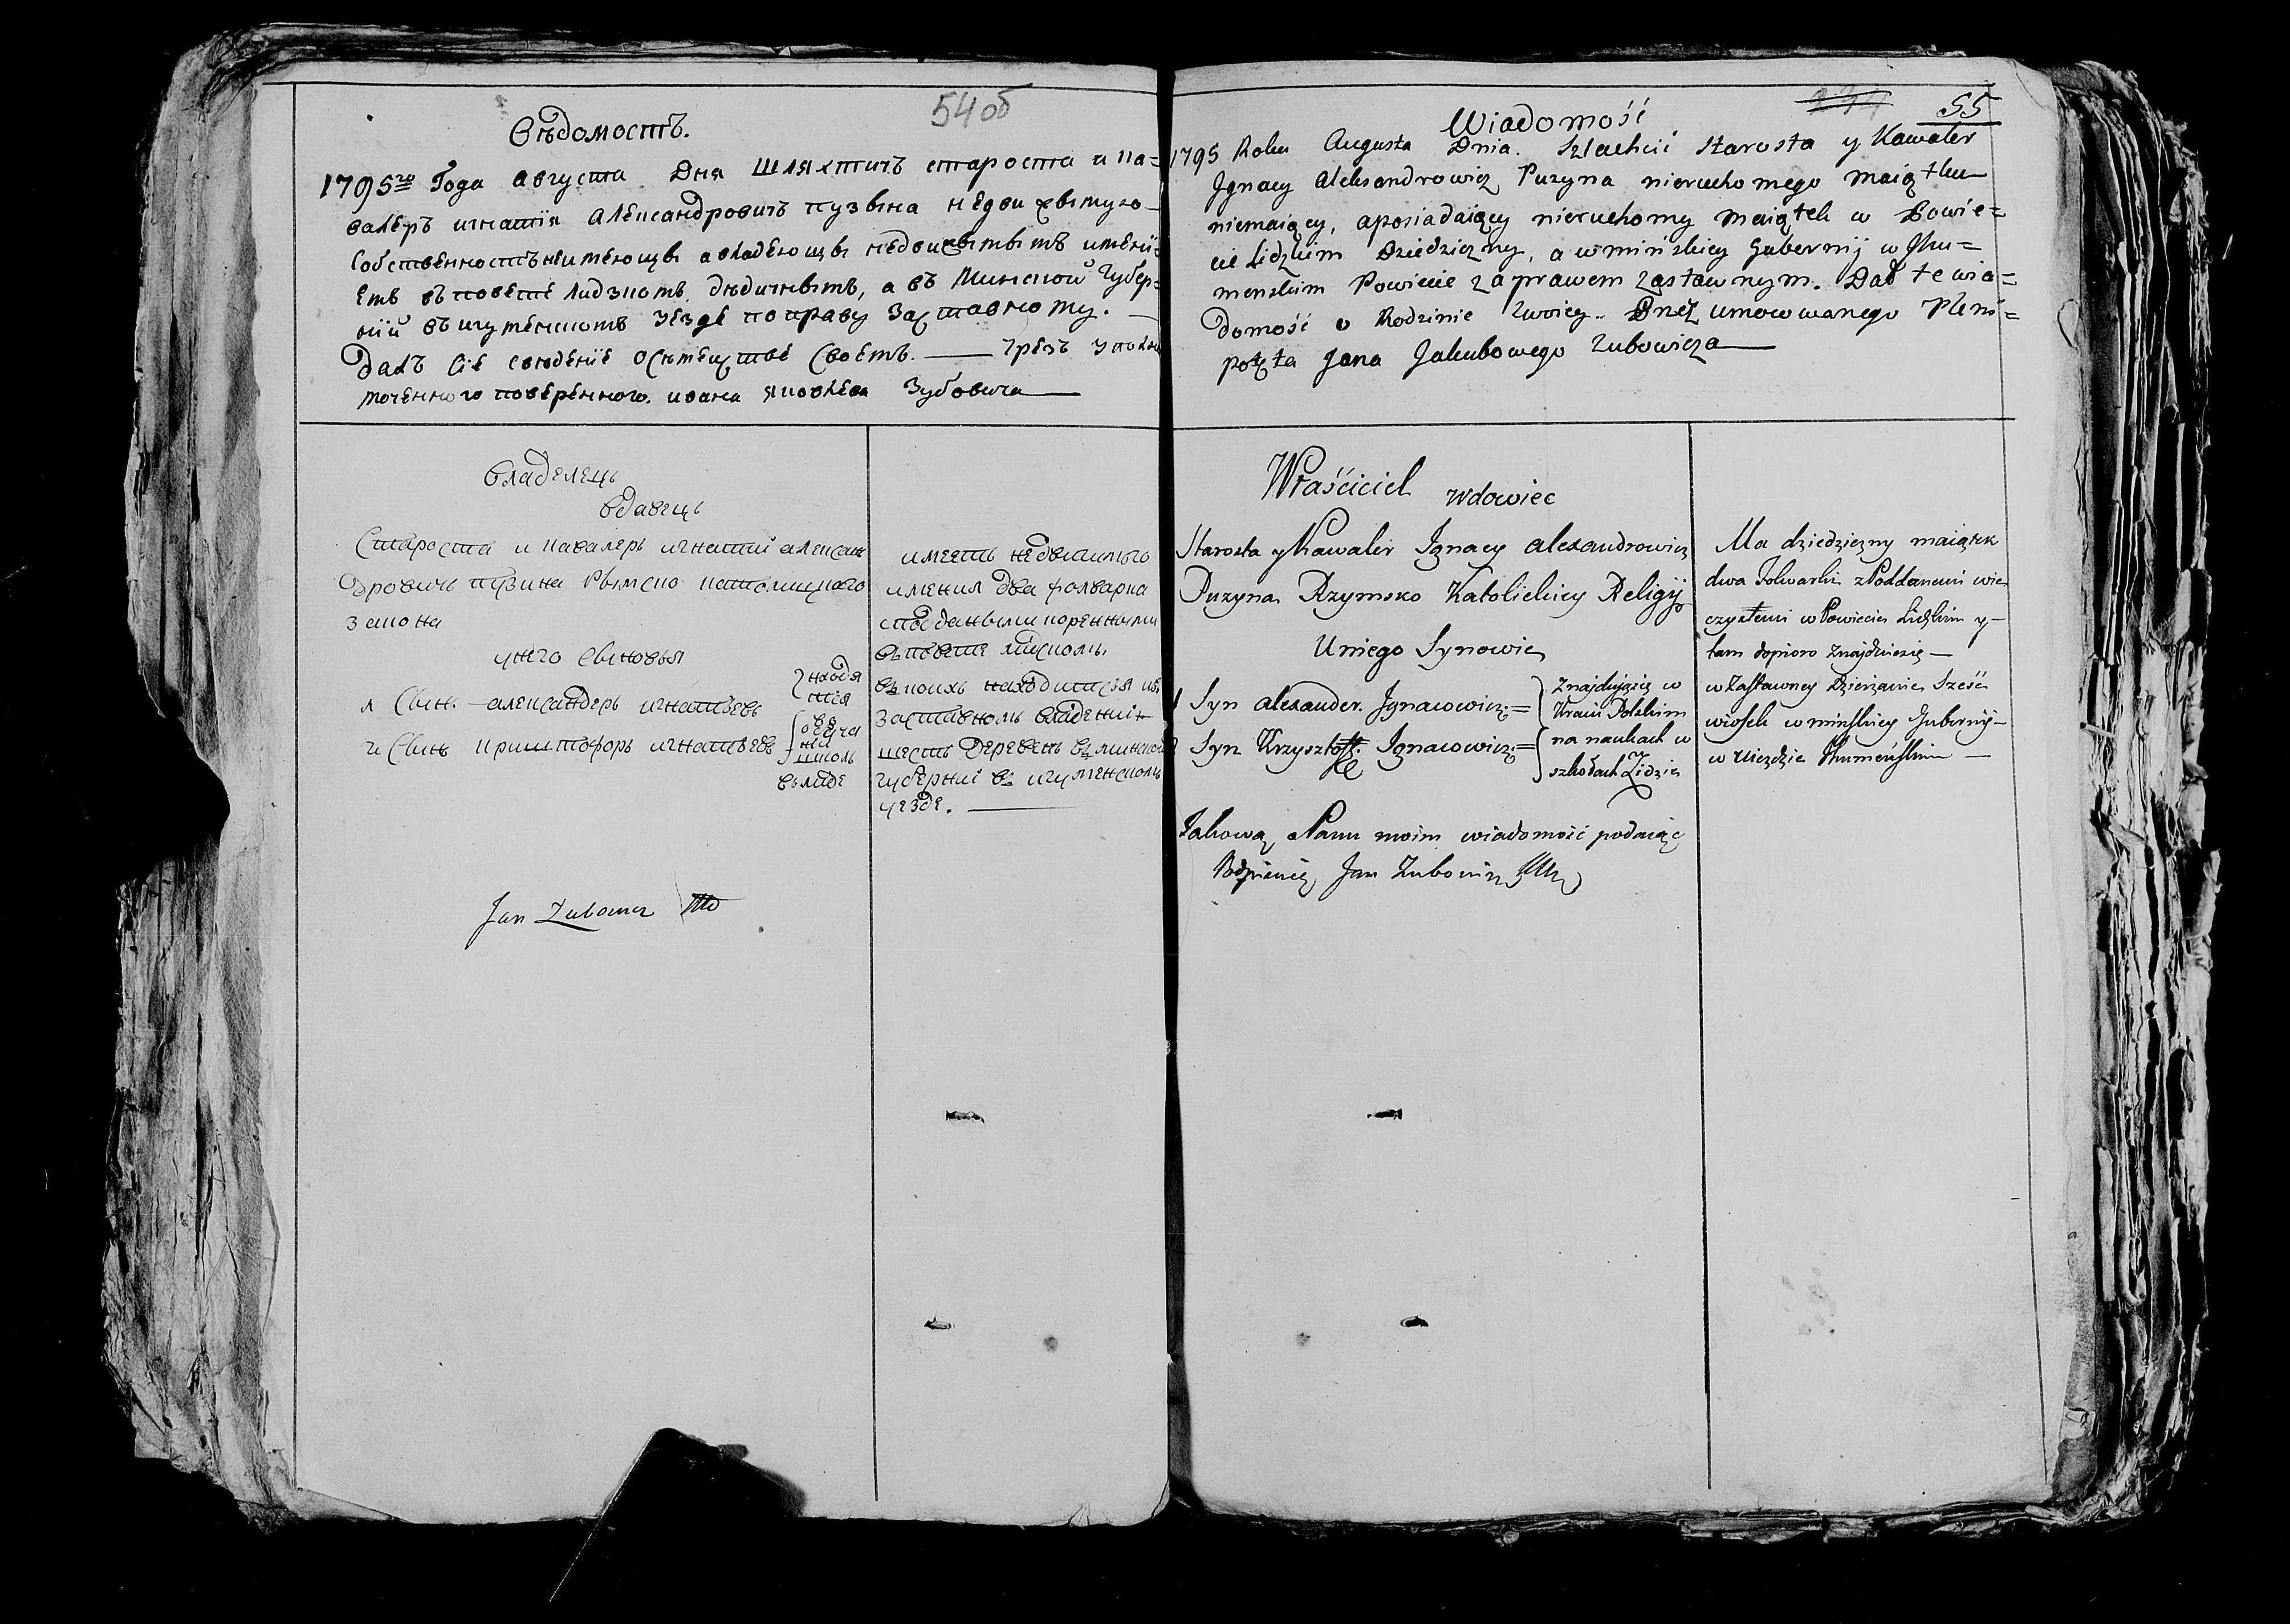 54 об
Вѣдомость.
1795го Года августа Дня Шляхтичъ староста и ка=
валеръ игнатiи Александровичъ пузына недвихымуго
собственность неимеющы авладеющы недвихымымъ имени=
емъ въ повете Лидзкомъ дѣдичнымъ, а въ Минской Губер=
нiи въ игуменскомъ уезде по праву Заставному.
далъ сiе сведенiе осѣмействе своемъ. — Чрезъ уполно
моченного поверенного ивана яковлева Зубовича
Владелецъ
вдавецъ
Староста и каваперъ игнатий алексан
дровичъ пузина рымско католицкаго
закона
унего сыновья
1 Сынъ александеръ игнатьевъ
находя
тся
2 Сынъ криштофоръ игнатьевъ
школъ
въ лиде
имеетъ недвижимого
имения два фолварка
споданными коренными
въ повете лидскомъ
въ коихъ находится
заставномъ владении
шесть деревень въ минской
губернии въ игуменскомъ
уезде.
Jan Zubowicz
55
Wiadomość
1795 Roku Augusta Dnia. Szlachcic Starosta y Kawaler
Jgnacy Aleksandrowicz Puzyna nieruchomego maiątku
niemaiący, aposiadaiący nieruchomy maiątek w Powie=
cie Lidzkim Dziedziczny, a w mińskiey Gubernij w Jhu=
menskim Powiecie za prawem zastawnym. Dał te wia=
domość o Rodzinie Swoiey. Przez umocowanego Pleni=
potęta Jana Jakubowego Zubowicza
Właściciel
Wdowiec
Starosta y Kawaler Ignacy alexandrowicz
Puzyna Rzymsko Katolickiey Religij
Uniego Synowie
1 Syn alexander. Jgnacowicz =
Znajdujęsię w
Kraiu Polskim
2 Syn Krzysztoff. Ignacowicz =
na naukach w
szkołach Lidzie
Jakową o Panu moim wiadomość podaiąc
Podpisuię Jan Zubowicz
Ma dziedziczny maiątek
dwa Folwarki z Poddanemi wie
czystemi w Powiecie Lidzkim y
tam dopioro znajdziesię —
w Zastawney Dzierżawie Sześć
wiosek w minskiey Gubernij —
w Uiezdzie Jhumeńskim —